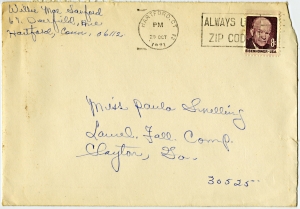 Willie Mae Sanford
64 Deerfield Ave
Hartford, Conn. 06112
HARTFORD, CT
PM
25 OCT
1971
ALWAYS U
ZIP COD
8c
EISENHOWER·USA
Miss Paula Snelling
Laurel Fall Camp.
Clayton, Ga.
30525